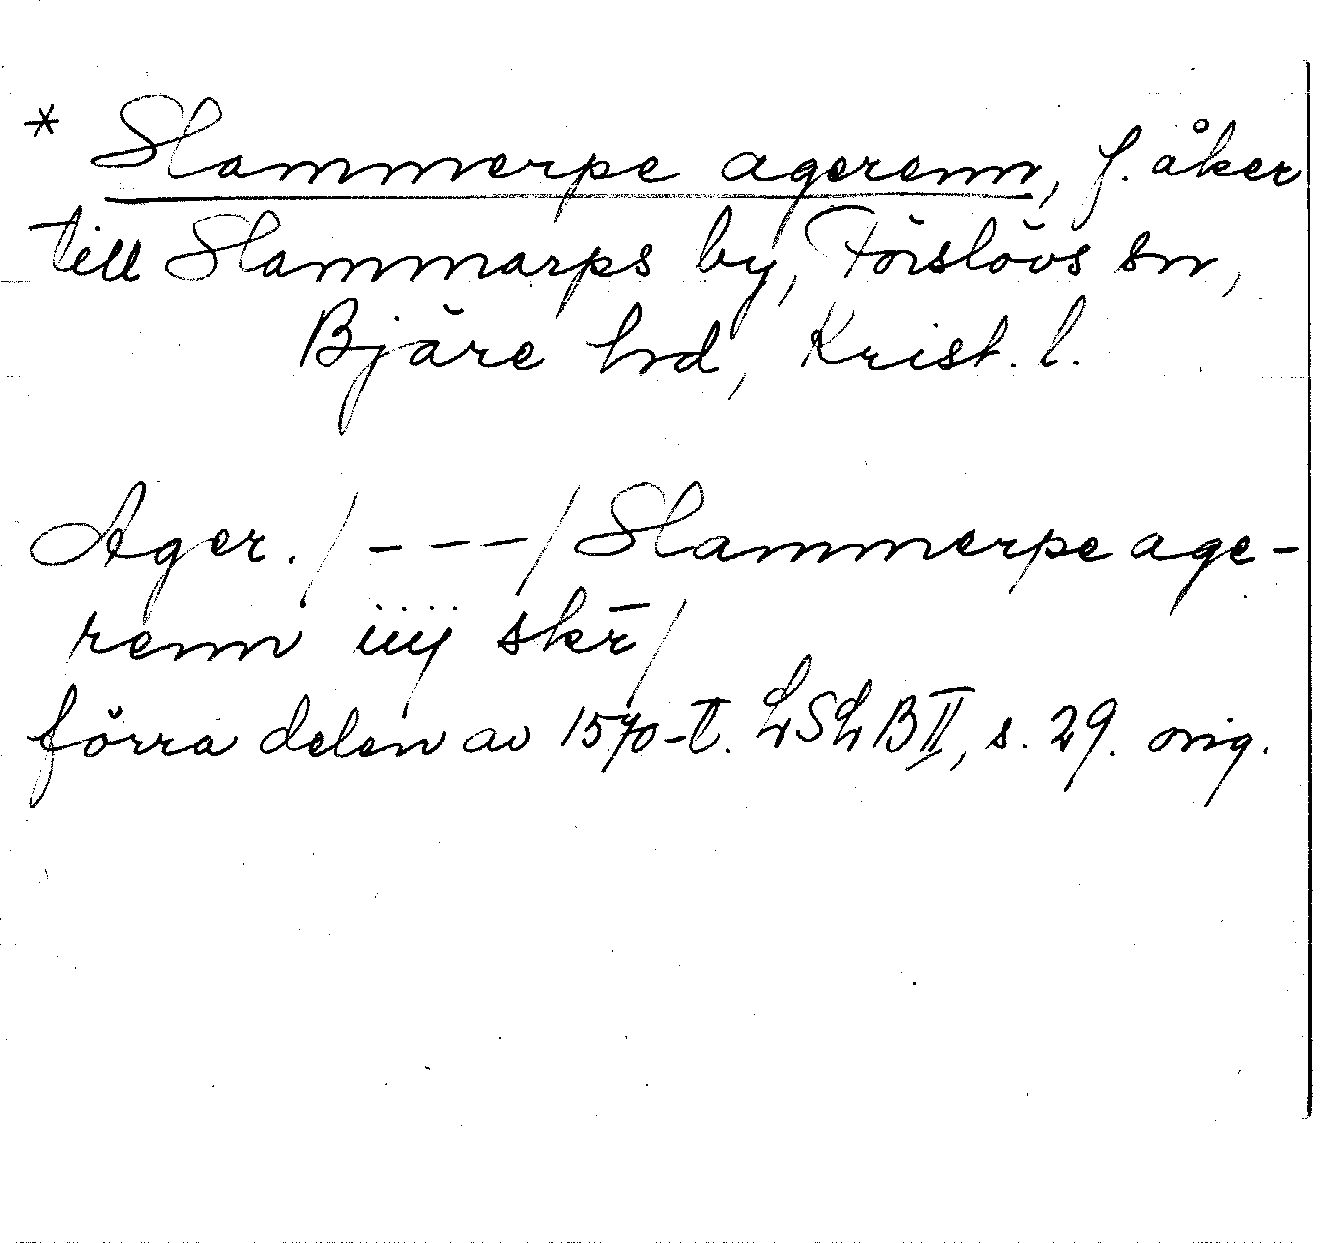 * Slammerpe agerenn, f. åker
till Slammarps by, Förslövs sn,
Bjäre hd, Krist. l.
Ager. / - - - / Slammerpe age-
renn iiij skr̄ /
förra delen av 1570-t. LSLB II, s. 29. orig.